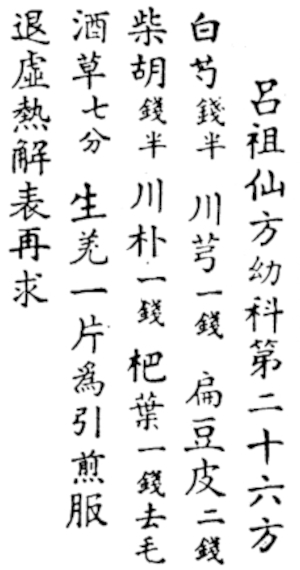 呂祖仙方幼科第二十六方
白芍錢半 川芎一錢 扁豆皮二錢
柴胡錢半 川朴一錢 杷葉一錢去毛
酒草七分 生羌一片爲引煎服
退虛熱解表再求